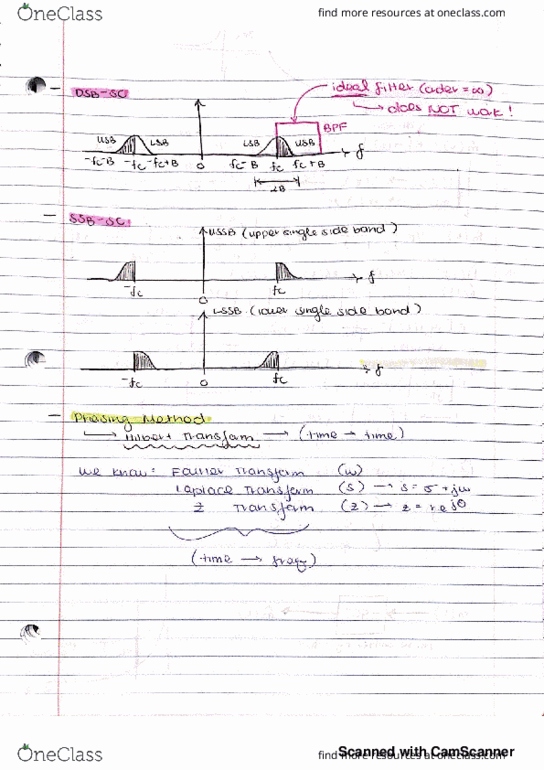 OneClass
find more resources at oneclass.com
- DSB-SC
ideal filter (order = ∞)
↳ does NOT work!
BPF
USB LSB LSB USB
-fc-B -fc -fc+B 0 fc-B fc fc+B f
2B
- SSB-SC
USSB (upper single side band)
-fc 0 fc f
LSSB (lower single side band)
-fc 0 fc f
- Phasing Method
↳ Hilbert Transform → (time → time)
We know: Fourier Transform (ω)
Laplace Transform (s) → s = σ + jω
Z Transform (z) → z = re^jθ
(time → freq)
Scanned with CamScanner
OneClass
find more resources at oneclass.com